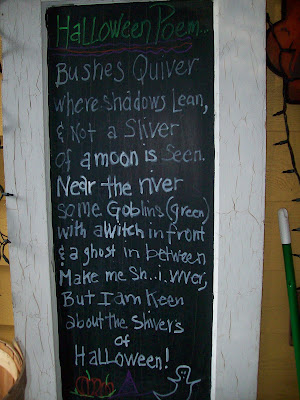 Halloween Poem...
Bushes Quiver
where shadows Lean,
& Not a Sliver
of a moon is Seen.
Near the river
some Goblins (green)
with a witch in front
& a ghost in between
Make me Sh..i..vver,
But I am Keen
about the Shivers
of
Halloween!